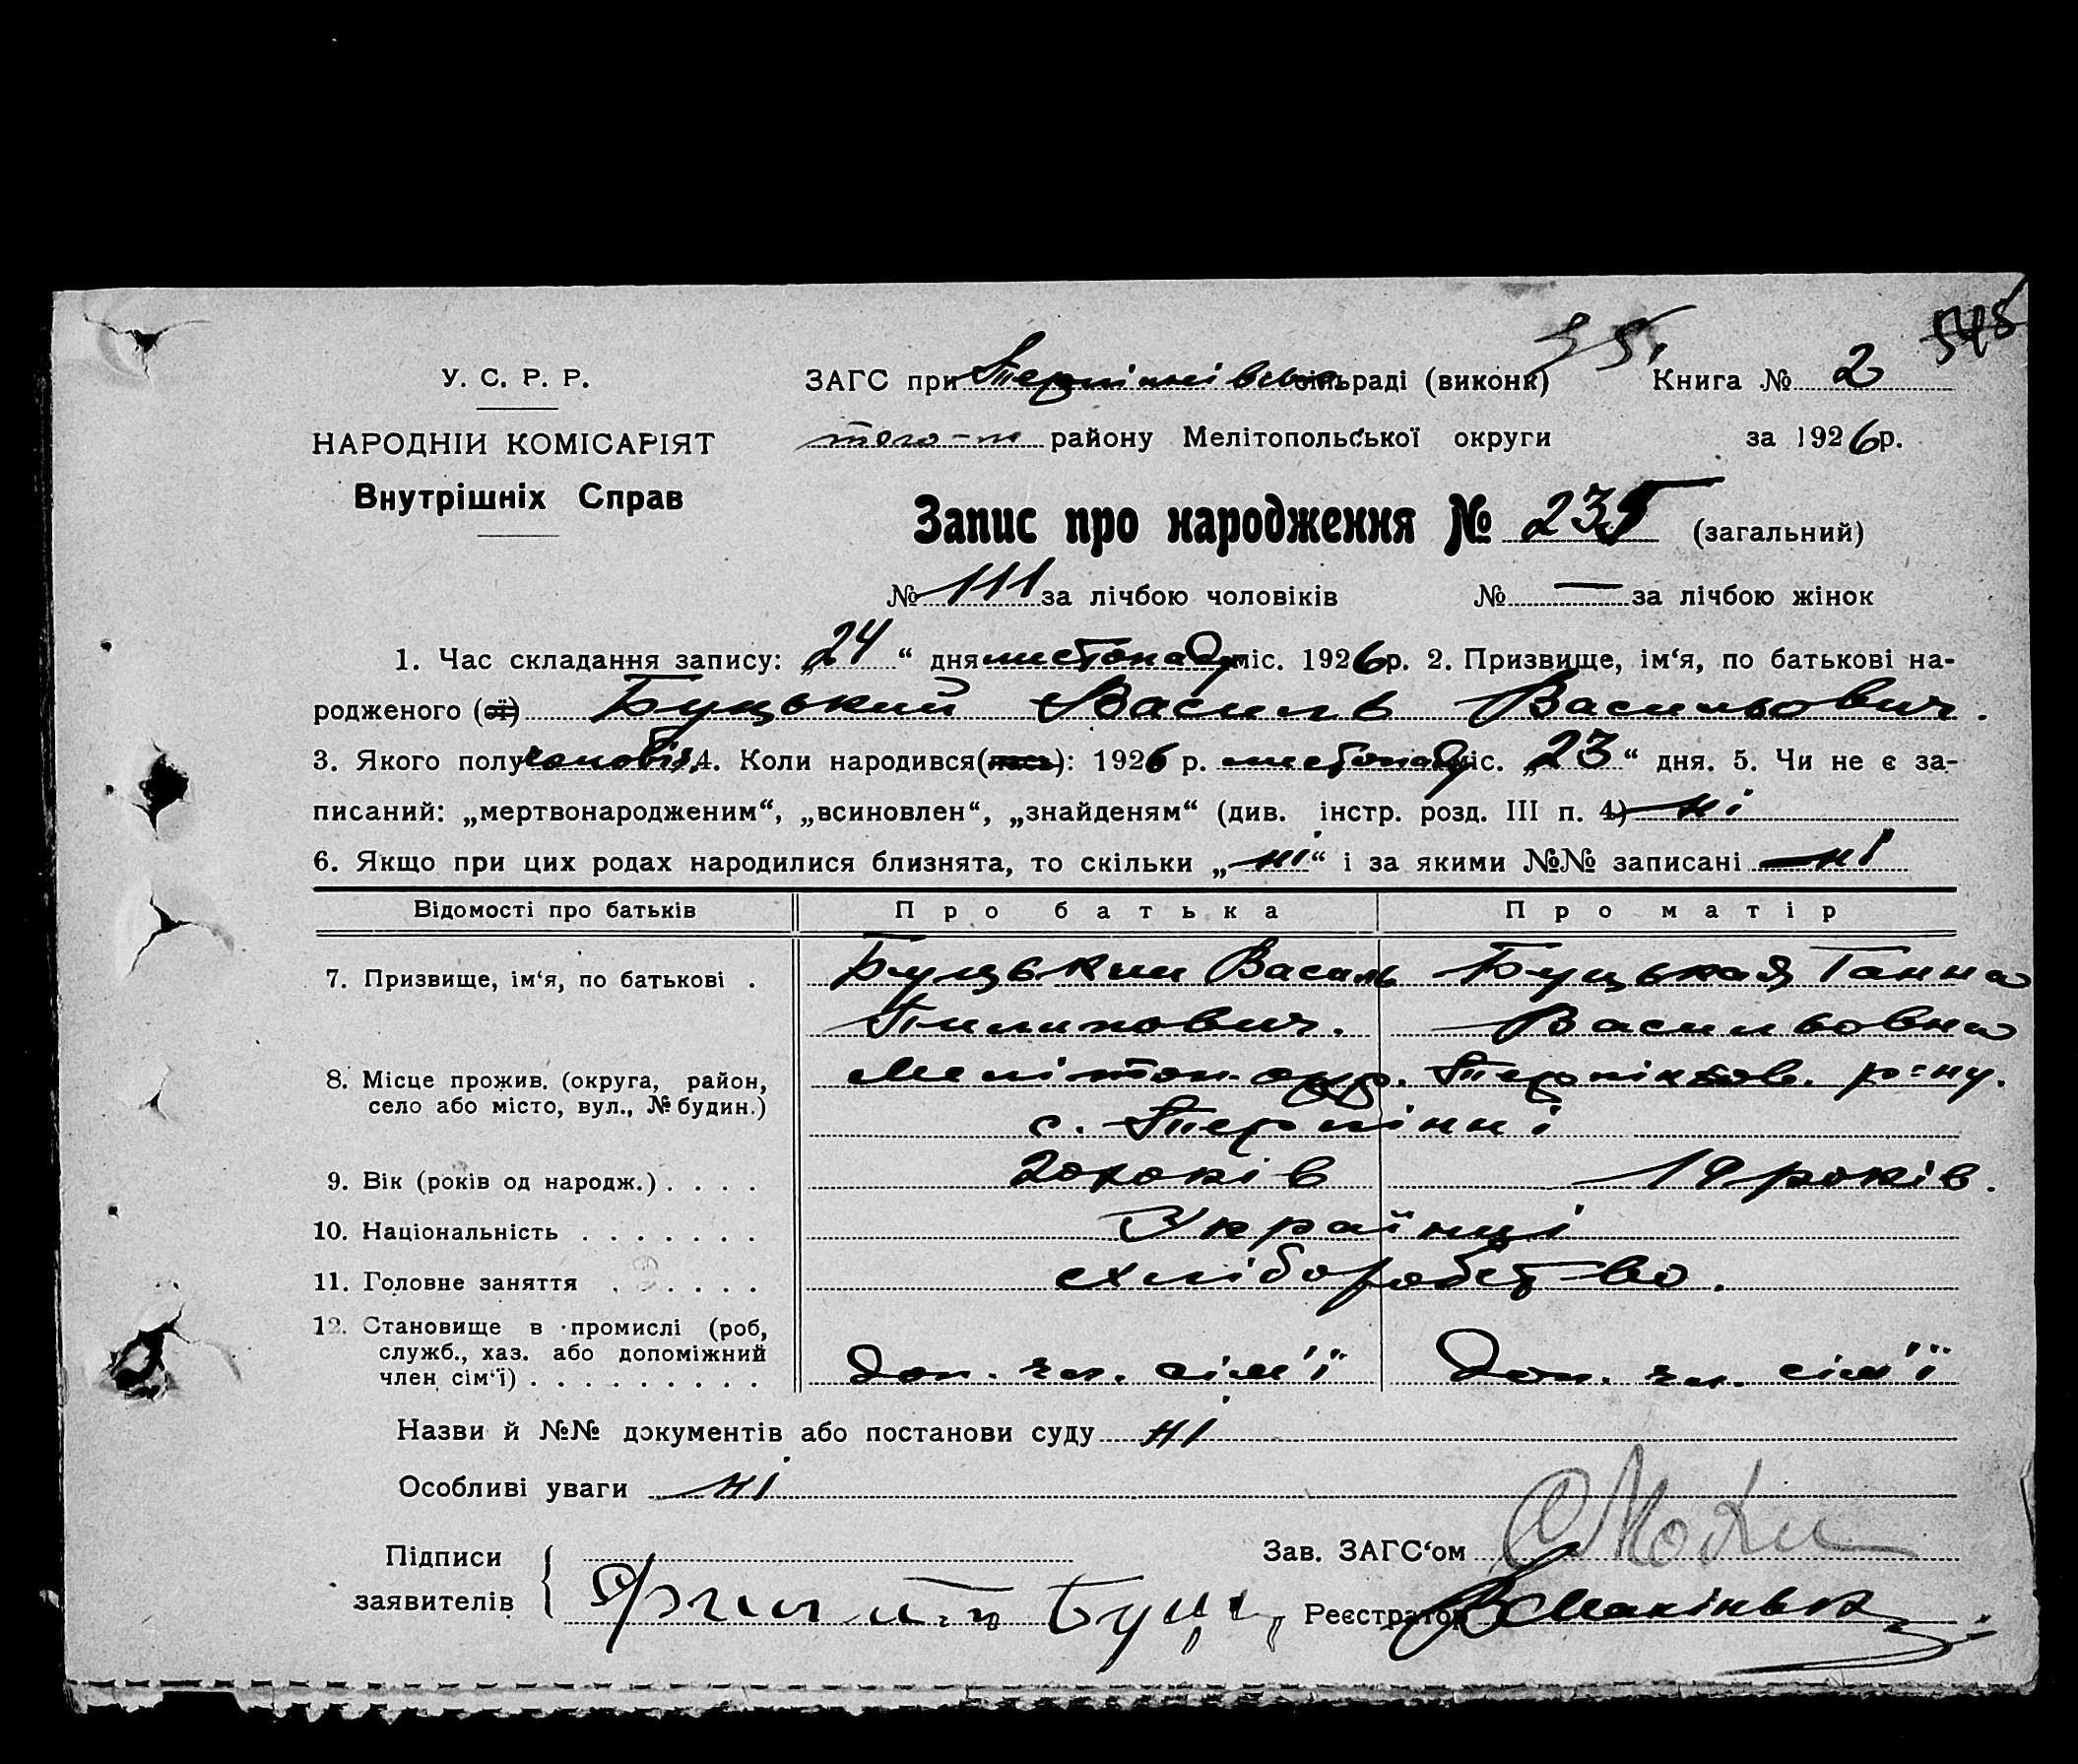 548
35.
У. С. Р. Р.
ЗАГС при Терпінівськ. сільраді (виконк) Книга № 2
НАРОДНІЙ КОМІСАРІЯТ
того-ж району Мелітопольської округи за 1926 р.
Внутрішніх Справ
Запис про народження № 235 (загальний)
№ 111 за лічбою чоловіків № — за лічбою жінок
1. Час складання запису: „24“ дня листопаду міс. 1926 р. 2. Призвище, ім‘я, по батькові на-
родженого (ої) Буцький Василь Васильович.
3. Якого полу чоловіч. 4. Коли народився (лась): 1926 р. листопаду міс. „23“ дня. 5. Чи не є за-
писаний: „мертвонародженим“, „всиновлен“, „знайденям“ (див. інстр. розд. III п. 4) ні
6. Якщо при цих родах народилися близнята, то скільки „ні“ і за якими №№ записані ні
Відомості про батьків Про батька Про матір
7. Призвище, ім‘я, по батькові . Буцький Василь Буцькая Ганна
Пилипович. Васильовна
8. Місце прожив. (округа, район, Мелітоп. окр. Терпінтов. р-ну.
село або місто, вул., № будин.)
с. Терпінні
9. Вік (років од народж.) . . . . 20 років 19 років.
10. Національність . . . . . . . Українці
11. Головне заняття . . . . . . хліборобство.
12. Становище в промислі (роб,
служб., хаз. або допоміжний
член сім‘ї) . . . . . . . . . Доп. чл. сім'ї Доп. чл. сім'ї
Назви й №№ документів або постанови суду ні
Особливі уваги ні
Підписи Зав. ЗАГС‘ом
заявителів Буць Реєстратор